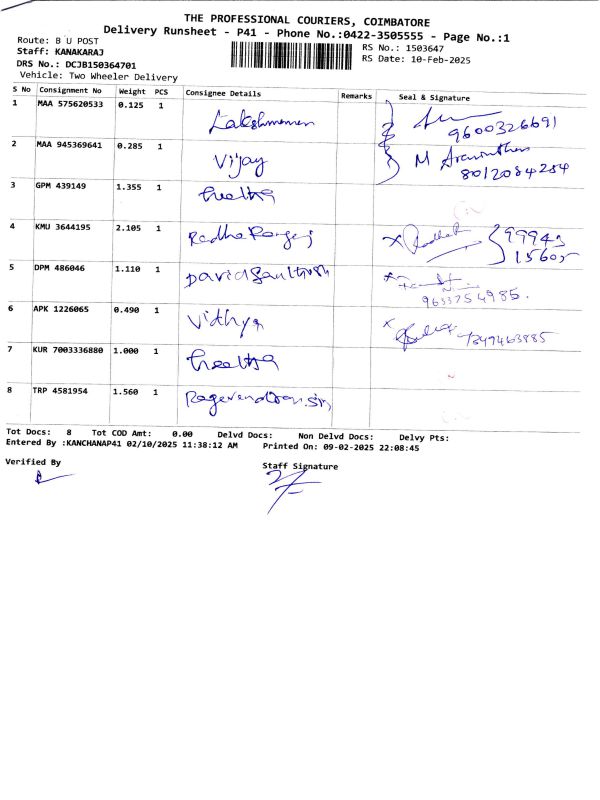 THE PROFESSIONAL COURIERS, COIMBATORE
Delivery Runsheet - P41 - Phone No.:0422-3505555 - Page No.:1
Route: B U POST
RS No.: 1503647
Staff: KANAKARAJ
RS Date: 10-Feb-2025
DRS No.: DCJB150364701
Vehicle: Two Wheeler Delivery
S No Consignment No Weight PCS Consignee Details Remarks Seal & Signature
1 MAA 575620533 0.125 1 Lakshmanan 9600326691
2 MAA 945369641 0.285 1 Vijay M Aravinthan 8012084284
3 GPM 439149 1.355 1
4 KMU 3644195 2.105 1 Radha
5 DPM 486046 1.110 1 David
6 APK 1226065 0.490 1 Vidhya
7 KUR 7003336880 1.000 1
8 TRP 4581954 1.560 1
Tot Docs: 8 Tot COD Amt: 0.00 Delvd Docs: Non Delvd Docs: Delvy Pts:
Entered By :KANCHANAP41 02/10/2025 11:38:12 AM Printed On: 09-02-2025 22:08:45
Verified By
Staff Signature